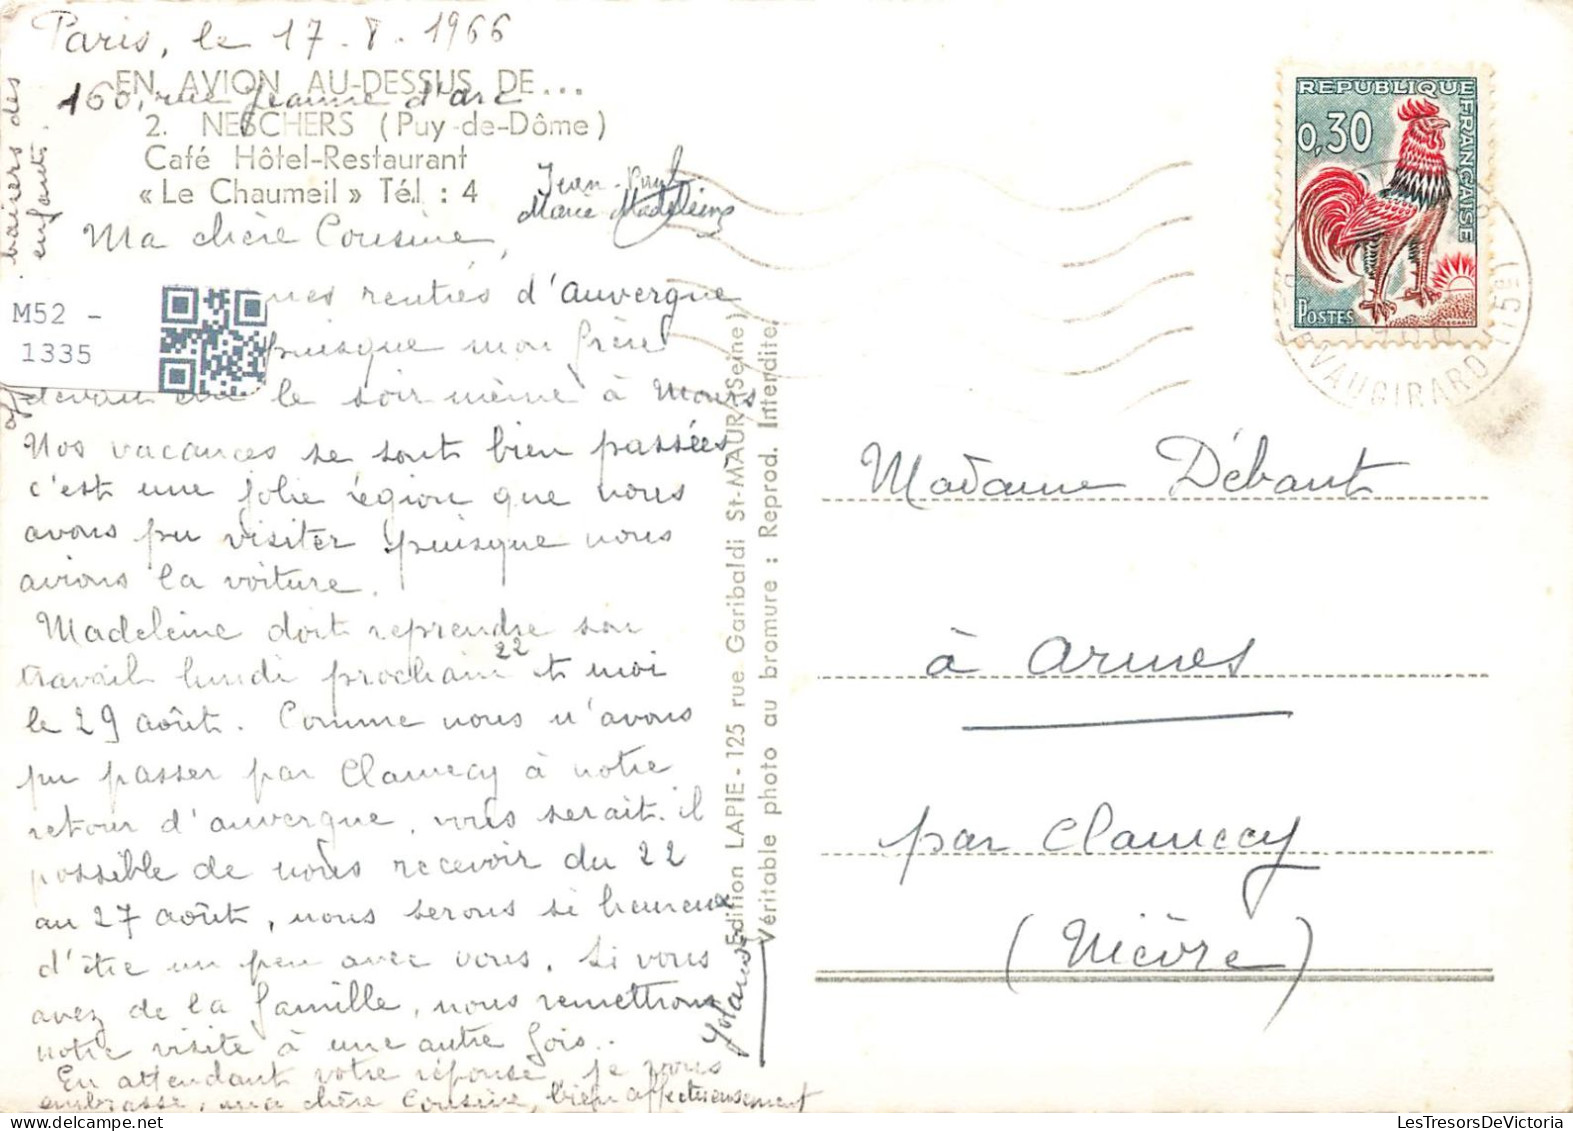 Paris, le 17.8.1966
EN AVION AU-DESSUS DE...
160, rue Jeanne d'arc
2. NESCHERS (Puy-de-Dôme)
Café Hôtel-Restaurant
« Le Chaumeil » Tél : 4
Jean-Paul
Marie Madeleine
baisers des
enfants
Ma chère Cousine,
rentrés d'Auvergne
puisque mon frère
devait le soir même à
Nos vacances se sont bien passées
c'est une jolie région que nous
avons pu visiter puisque nous
avions la voiture.
Madeleine doit reprendre son
travail lundi prochain 22 et moi
le 29 août. Comme nous n'avons
pu passer par Clamecy à notre
retour d'auvergne, vous serait-il
possible de nous recevoir du 22
au 27 août, nous serons si heureux
d'être un peu avec vous. Si vous
avez de la famille, nous remettrons
notre visite à une autre fois..
En attendant votre réponse, je vous
embrasse, ma chère Cousine, bien affectueusement
Yolande
M52 -
1335
Edition LAPIE - 125 rue Garibaldi St-MAUR (Seine)
Véritable photo au bromure : Reprod. Interdite
REPUBLIQUE
FRANCAISE
0,30
POSTES
DECARIS
VAUGIRARD (15E)
Madame Débant
à Armes
par Clamecy
(Nièvre)
LesTresorsDeVictoria - delcampe.net